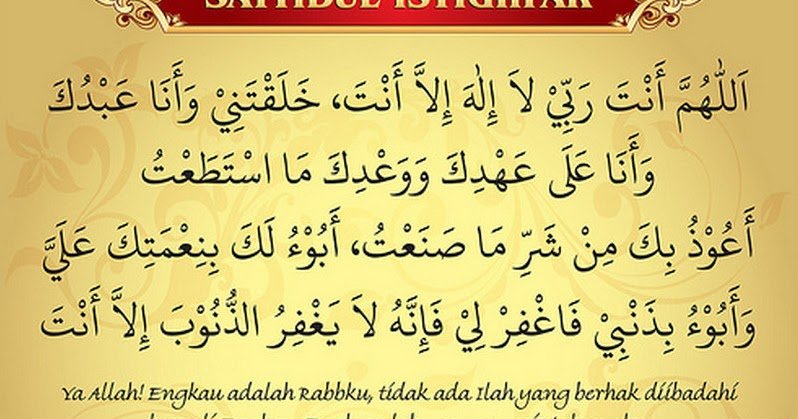 SAYYIDUL ISTIGHFAR
اَللّٰهُمَّ أَنْتَ رَبِّيْ لاَ إِلٰهَ إِلاَّ أَنْتَ، خَلَقْتَنِيْ وَأَنَا عَبْدُكَ
وَأَنَا عَلَى عَهْدِكَ وَوَعْدِكَ مَا اسْتَطَعْتُ
أَعُوْذُ بِكَ مِنْ شَرِّ مَا صَنَعْتُ، أَبُوْءُ لَكَ بِنِعْمَتِكَ عَلَيَّ
وَأَبُوْءُ بِذَنْبِيْ فَاغْفِرْ لِيْ فَإِنَّهُ لاَ يَغْفِرُ الذُّنُوْبَ إِلاَّ أَنْتَ
Ya Allah! Engkau adalah Rabbku, tidak ada Ilah yang berhak diibadahi